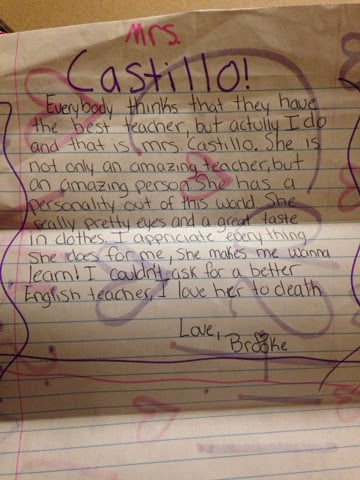 Mrs.
Castillo!
Everybody thinks that they have
the best teacher, but actully I do
and that is mrs. Castillo. She is
not only an amazing teacher, but
an amazing person. She has a
personality out of this world She
really pretty eyes and a great taste
in clothes. I appriciate everything
she does for me, she makes me wanna
learn! I couldn't ask for a better
English teacher, I love her to death
Love,
Brooke